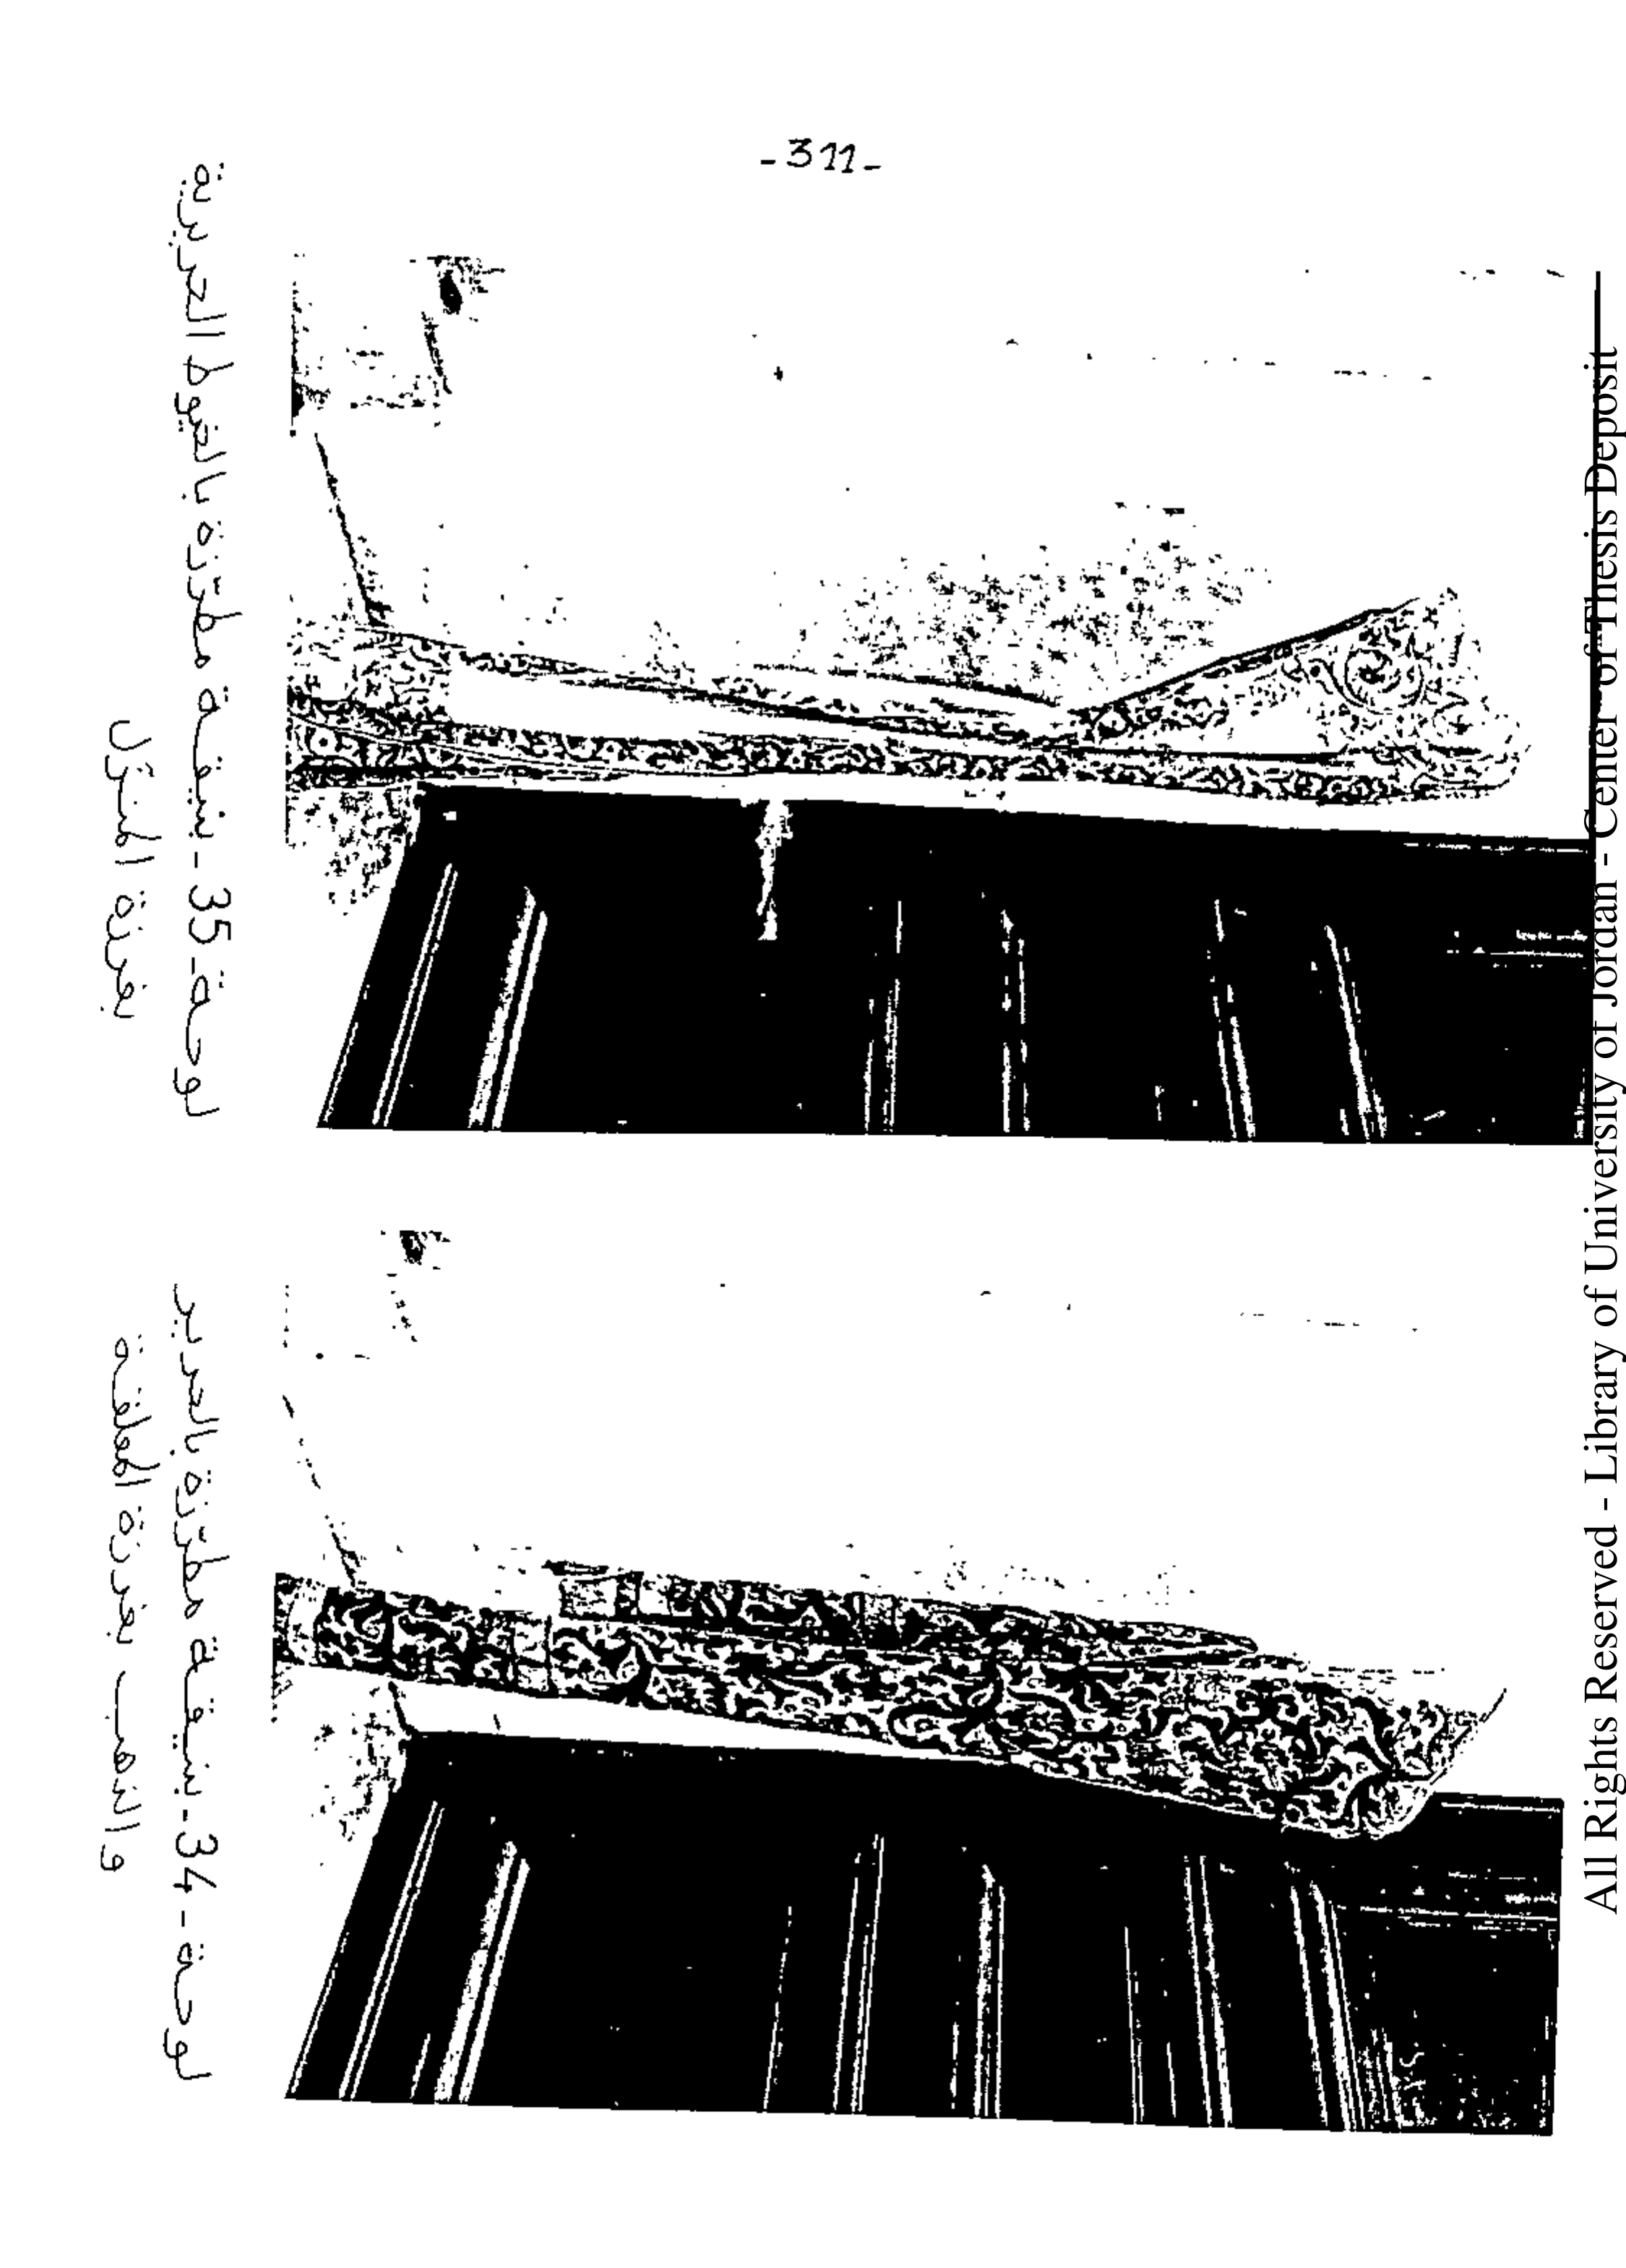 -311-
لوحة -35- بنيقة مطرّزة بالخيوط الحريرية
بغرزة المنزّل
لوحة -34- بنيقة مطرّزة بالحرير
والذهب بغرزة المعلقة
All Rights Reserved - Library of University of Jordan - Center of Thesis Deposit